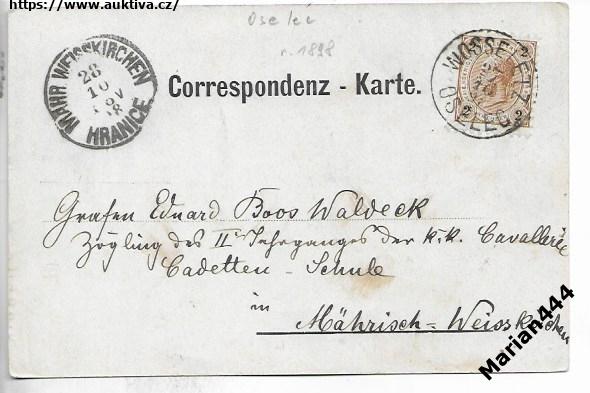 https://www.auktiva.cz/
Oselec
r. 1898
MÄHR. WEISSKIRCHEN
28
10
98
HRANICE
WOSSELETZ
OSELEC
2 2
Correspondenz - Karte.
Grafen Eduard Boos Waldeck
Zögling des IIᵗ Jahrganges der k.k. Cavallerie
Cadetten - Schule
in
Mährisch - Weisskirchen
Marian444